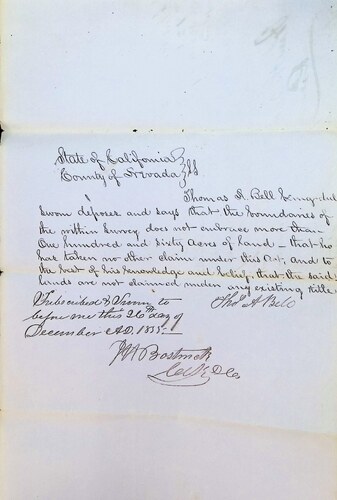 State of California } SS
County of Nevada }
Thomas A. Bell being dul
Sworn deposes and says that the boundaries of
the within Survey does not embrace more than
One hundred and Sixty Acres of land – that he
has taken no other claim under this Act, and to
the best of his knowledge and belief, that the said
lands are not claimed under any existing title
Subscribed & Sworn to
Thos A Bell
before me this 26th day of
December A.D. 1855
Bostwick